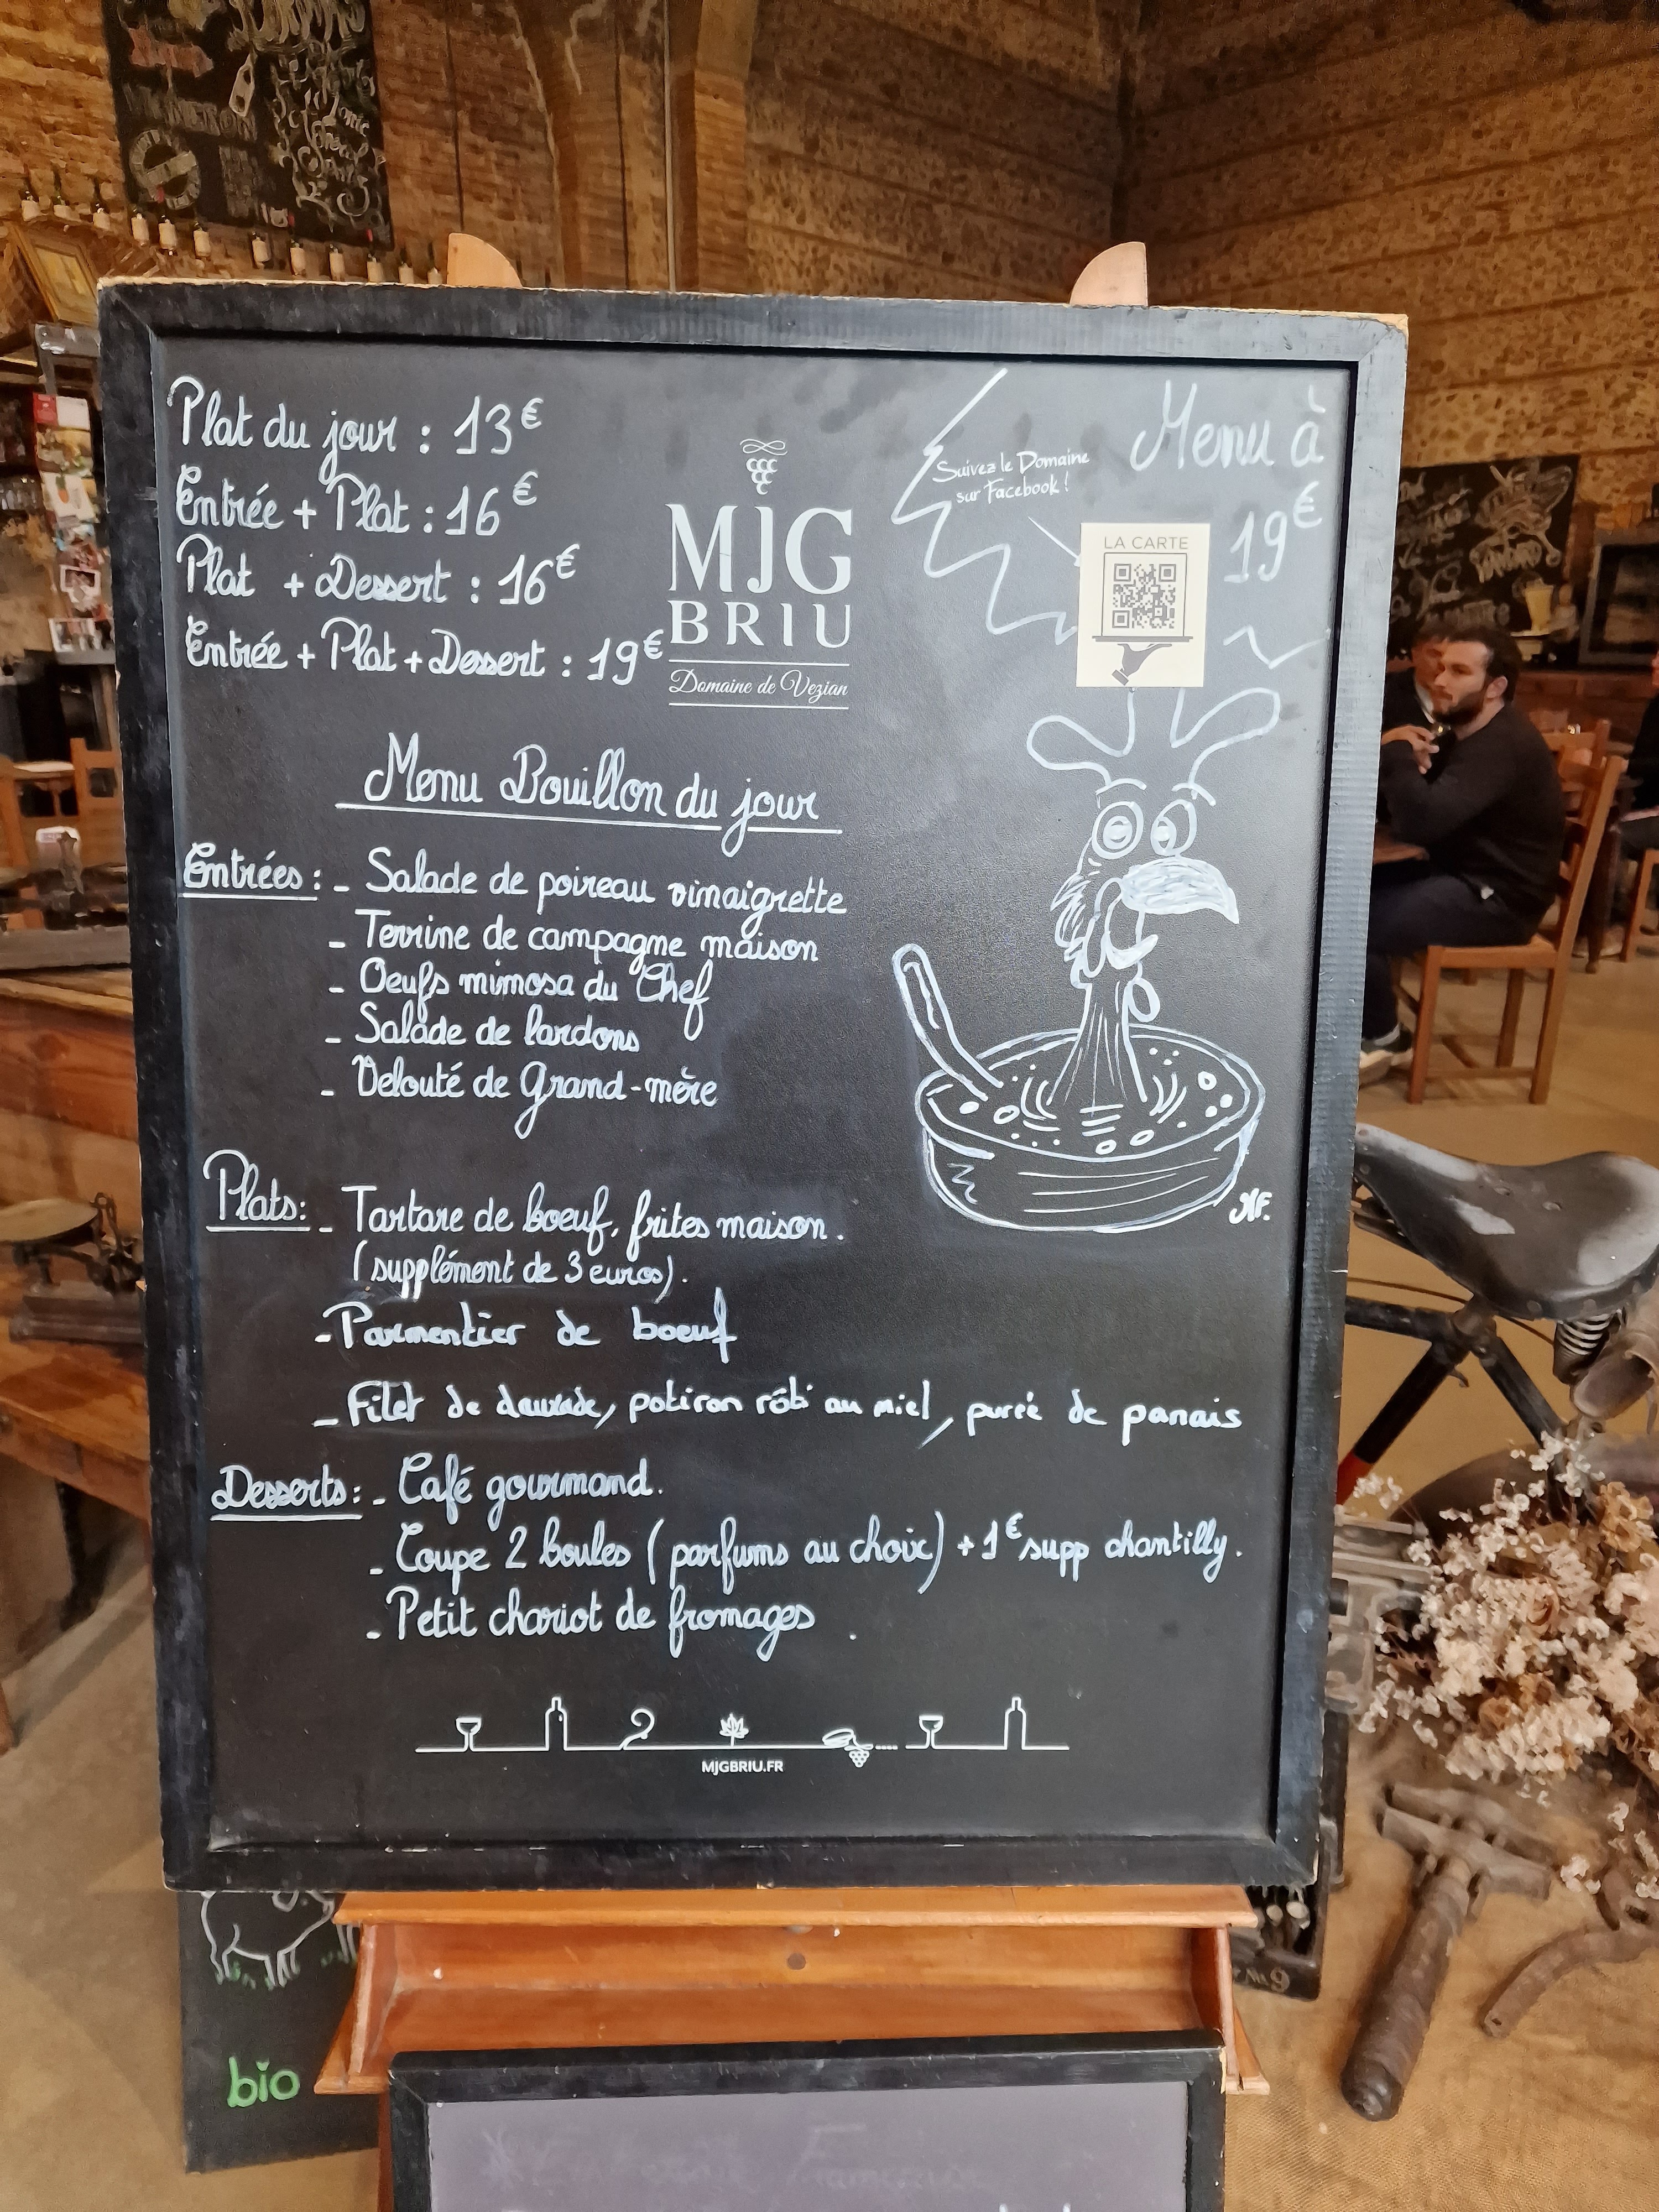 Plat du jour : 13€
Entrée + Plat : 16€
Plat + Dessert : 16€
Entrée + Plat + Dessert : 19€
MJG
BRIU
Domaine de Vezian
Suivez le Domaine
sur Facebook !
Menu à
19€
LA CARTE
Menu Bouillon du jour
Entrées : - Salade de poireau vinaigrette
- Terrine de campagne maison
- Oeufs mimosa du Chef
- Salade de lardons
- Velouté de Grand-mère
Plats: - Tartare de boeuf, frites maison.
(supplément de 3 euros).
- Parmentier de boeuf
- Filet de daurade, potiron rôti au miel, purée de panais
Desserts: - Café gourmand.
- Coupe 2 boules (parfums au choix) + 1€ supp chantilly.
- Petit chariot de fromages.
NF.
MJGBRIU.FR
bio